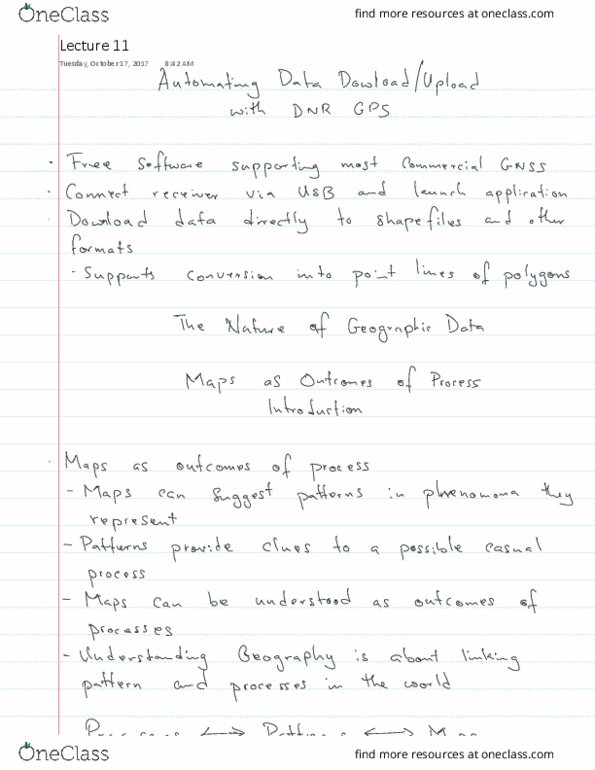 OneClass
find more resources at oneclass.com
Lecture 11
Tuesday, October 17, 2017 8:42 AM
Automating Data Dowload/Upload
with DNR GPS
· Free Software supporting most Commercial GNSS
· Connect receiver via USB and launch application
· Download data directly to shapefiles and other
formats
· Supports conversion into point lines of polygons
The Nature of Geographic Data
Maps as Outcomes of Process
Introduction
· Maps as outcomes of process
- Maps can suggest patterns in phenomoma they
represent
- Patterns provide clues to a possible casual
process
- Maps can be understood as outcomes of
processes
- Understanding Geography is about linking
pattern and processes in the world
OneClass
find more resources at oneclass.com